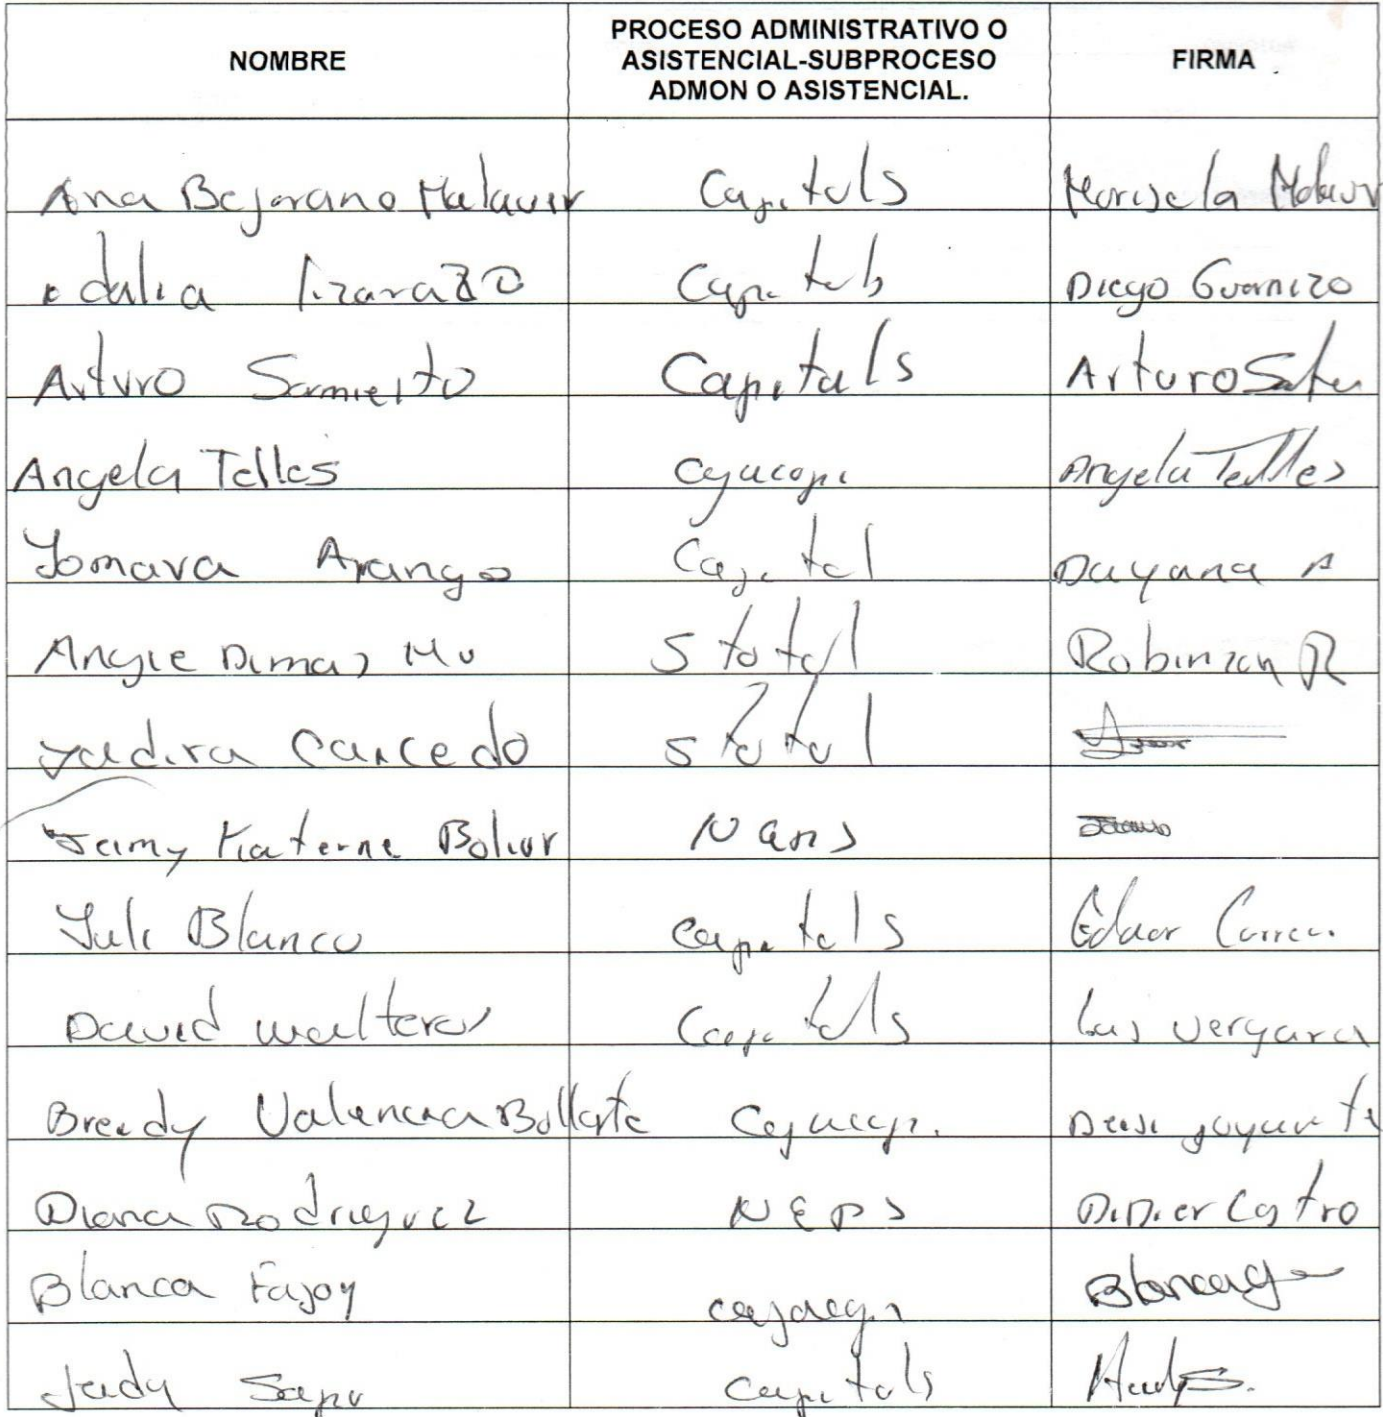 NOMBRE
PROCESO ADMINISTRATIVO O
ASISTENCIAL-SUBPROCESO
ADMON O ASISTENCIAL.
FIRMA
Ana Bejarano Malaver Capitals Marisela Malaver
Odalia lizarazo Capitals Diego Guarnizo
Arturo Sarmiento Capitals Arturo
Angela Telles Cajacopi Angela Telles
Yomara Arango Capital Dayana A
Angie Dimas Mu S total Robinson R
Yadira Caicedo S total
Katerine Bolivar
Yuli Blanco Capitals Eduar Correa.
David walteros Capitals luis vergara
Breidy Valencia Cajacopi.
Diana Rodriguez NEPS Didier Castro
Blanca Cajacopi
Capitals